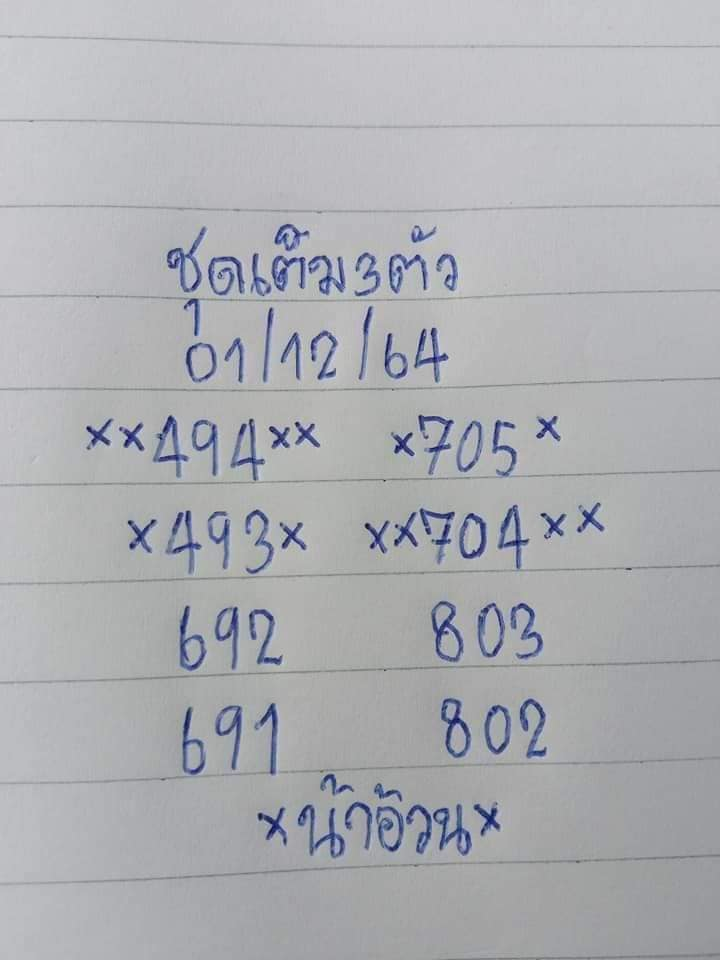 ชุดเต็ม3ตัว
01/12/64
××494×× ×705×
×493× ××704××
692 803
691 802
×น้าอ้วน×